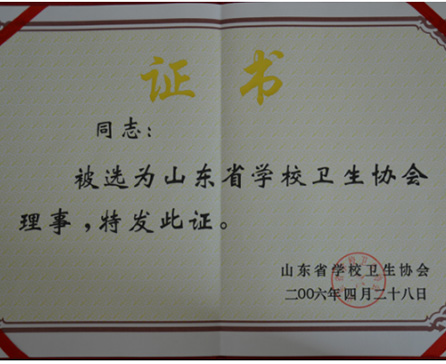 证书
同志：
被选为山东省学校卫生协会
理事，特发此证。
山东省学校卫生协会
二00六年四月二十八日